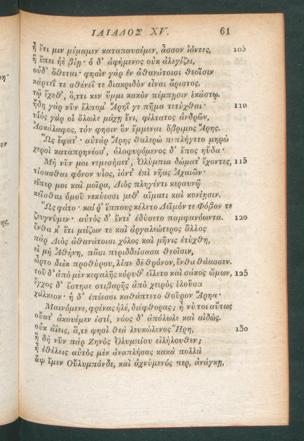 ΙΛΙΑΔΟΣ XV. 61
ἢ ἔτι μιν μέμαμεν καταπαυσέμεν, ἆσσον ἰόντες, 105
ἢ ἔπει ἠὲ βίῃ· ὁ δ' ἀφήμενος οὐκ ἀλεγίζει,
οὐδ' ὄθεται· φησὶν γὰρ ἐν ἀθανάτοισι θεοῖσιν
κάρτεΐ τε σθένεΐ τε διακριδὸν εἶναι ἄριστος.
τῷ ἔχεθ', ὅ,ττι κεν ὔμμι κακὸν πέμπῃσιν ἑκάστῳ.
ἤδη γὰρ νῦν ἔλπομ' Ἄρηΐ γε πῆμα τετύχθαι· 110
υἱὸς γάρ οἱ ὄλωλε μάχῃ ἔνι, φίλτατος ἀνδρῶν,
Ἀσκάλαφος, τόν φησιν ὃν ἔμμεναι ὄβριμος Ἄρης.
Ὣς ἔφατ'· αὐτὰρ Ἄρης θαλερὼ πεπλήγετο μηρὼ
χερσὶ καταπρηνέσσ', ὀλοφυρόμενος δ' ἔπος ηὔδα·
Μὴ νῦν μοι νεμεσήσετ', Ὀλύμπια δώματ' ἔχοντες, 115
τίσασθαι φόνον υἷος, ἰόντ' ἐπὶ νῆας Ἀχαιῶν·
εἴπερ μοι καὶ μοῖρα, Διὸς πληγέντι κεραυνῷ
κεῖσθαι ὁμοῦ νεκύεσσι μεθ' αἵματι καὶ κονίῃσιν.
Ὣς φάτο· καί ῥ' ἵππους κέλετο Δεῖμόν τε Φόβον τε
ζευγνύμεν· αὐτὸς δ' ἔντε' ἐδύσετο παμφανόωντα. 120
ἔνθα κ' ἔτι μείζων τε καὶ ἀργαλεώτερος ἄλλος
πὰρ Διὸς ἀθανάτοισι χόλος καὶ μῆνις ἐτύχθη,
εἰ μὴ Ἀθήνη, πᾶσι περιδδείσασα θεοῖσιν,
ὦρτο διὲκ προθύρου, λίπε δὲ θρόνον, ἔνθα θάασσεν.
τοῦ δ' ἀπὸ μὲν κεφαλῆς κόρυθ' εἵλετο καὶ σάκος ὤμων, 125
ἔγχος δ' ἔστησε στιβαρῆς ἀπὸ χειρὸς ἑλοῦσα
χάλκεον· ἡ δ' ἐπέεσσι καθάπτετο θοῦρον Ἄρηα·
Μαινόμενε, φρένας ἠλέ, διέφθορας; ἦ νύ τοι αὔτως
οὔατ' ἀκουέμεν ἐστί, νόος δ' ἀπόλωλε καὶ αἰδώς.
οὐκ ἀΐεις, ἅ,τε φησὶ θεὰ λευκώλενος Ἥρη, 130
ἣ δὴ νῦν πὰρ Ζηνὸς Ὀλυμπίου εἰλήλουθεν;
ἦ ἐθέλεις αὐτὸς μὲν ἀναπλήσας κακὰ πολλὰ
ἂψ ἴμεν Οὔλυμπόνδε, καὶ ἀχνύμενός περ, ἀνάγκῃ,